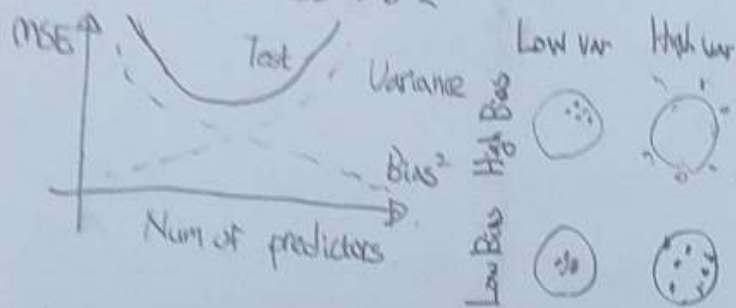 MSE
Test
Variance
Bias²
Num of predictors
Low var
High var
High Bias
Low Bias